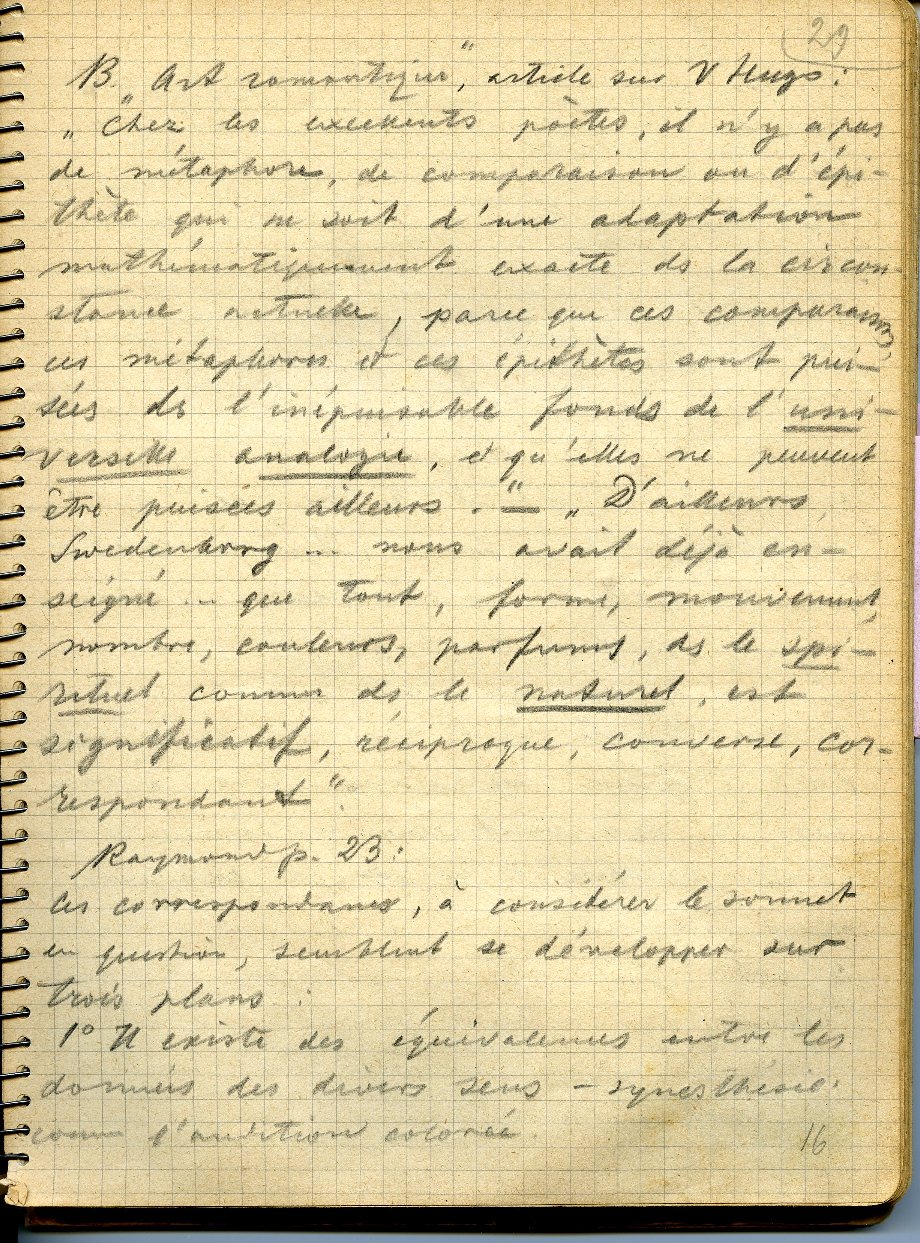 29
B. „Art romantique", article sur V Hugo:
„Chez les excellents poètes, il n'y a pas
de métaphore, de comparaison ou d'épi-
thète qui ne soit d'une adaptation
mathématiquement exacte ds la circon-
stance actuelle, parce que ces comparaisons,
ces métaphores et ces épithètes sont pui-
sées ds l'inépuisable fonds de l'uni-
verselle analogie, et qu'elles ne peuvent
être puisées ailleurs." — „D'ailleurs
Swedenborg ... nous avait déjà en-
seigné ... que tout, forme, mouvement,
nombre, couleurs, parfums, ds le spi-
rituel comme ds le naturel, est
significatif, réciproque, converse, cor-
respondant".
Raymond p. 23:
les correspondances, à considérer le sonnet
en question, semblent se développer sur
trois plans:
1° Il existe des équivalences entre les
données des divers sens – synesthésie.
comme l'audition colorée.
16